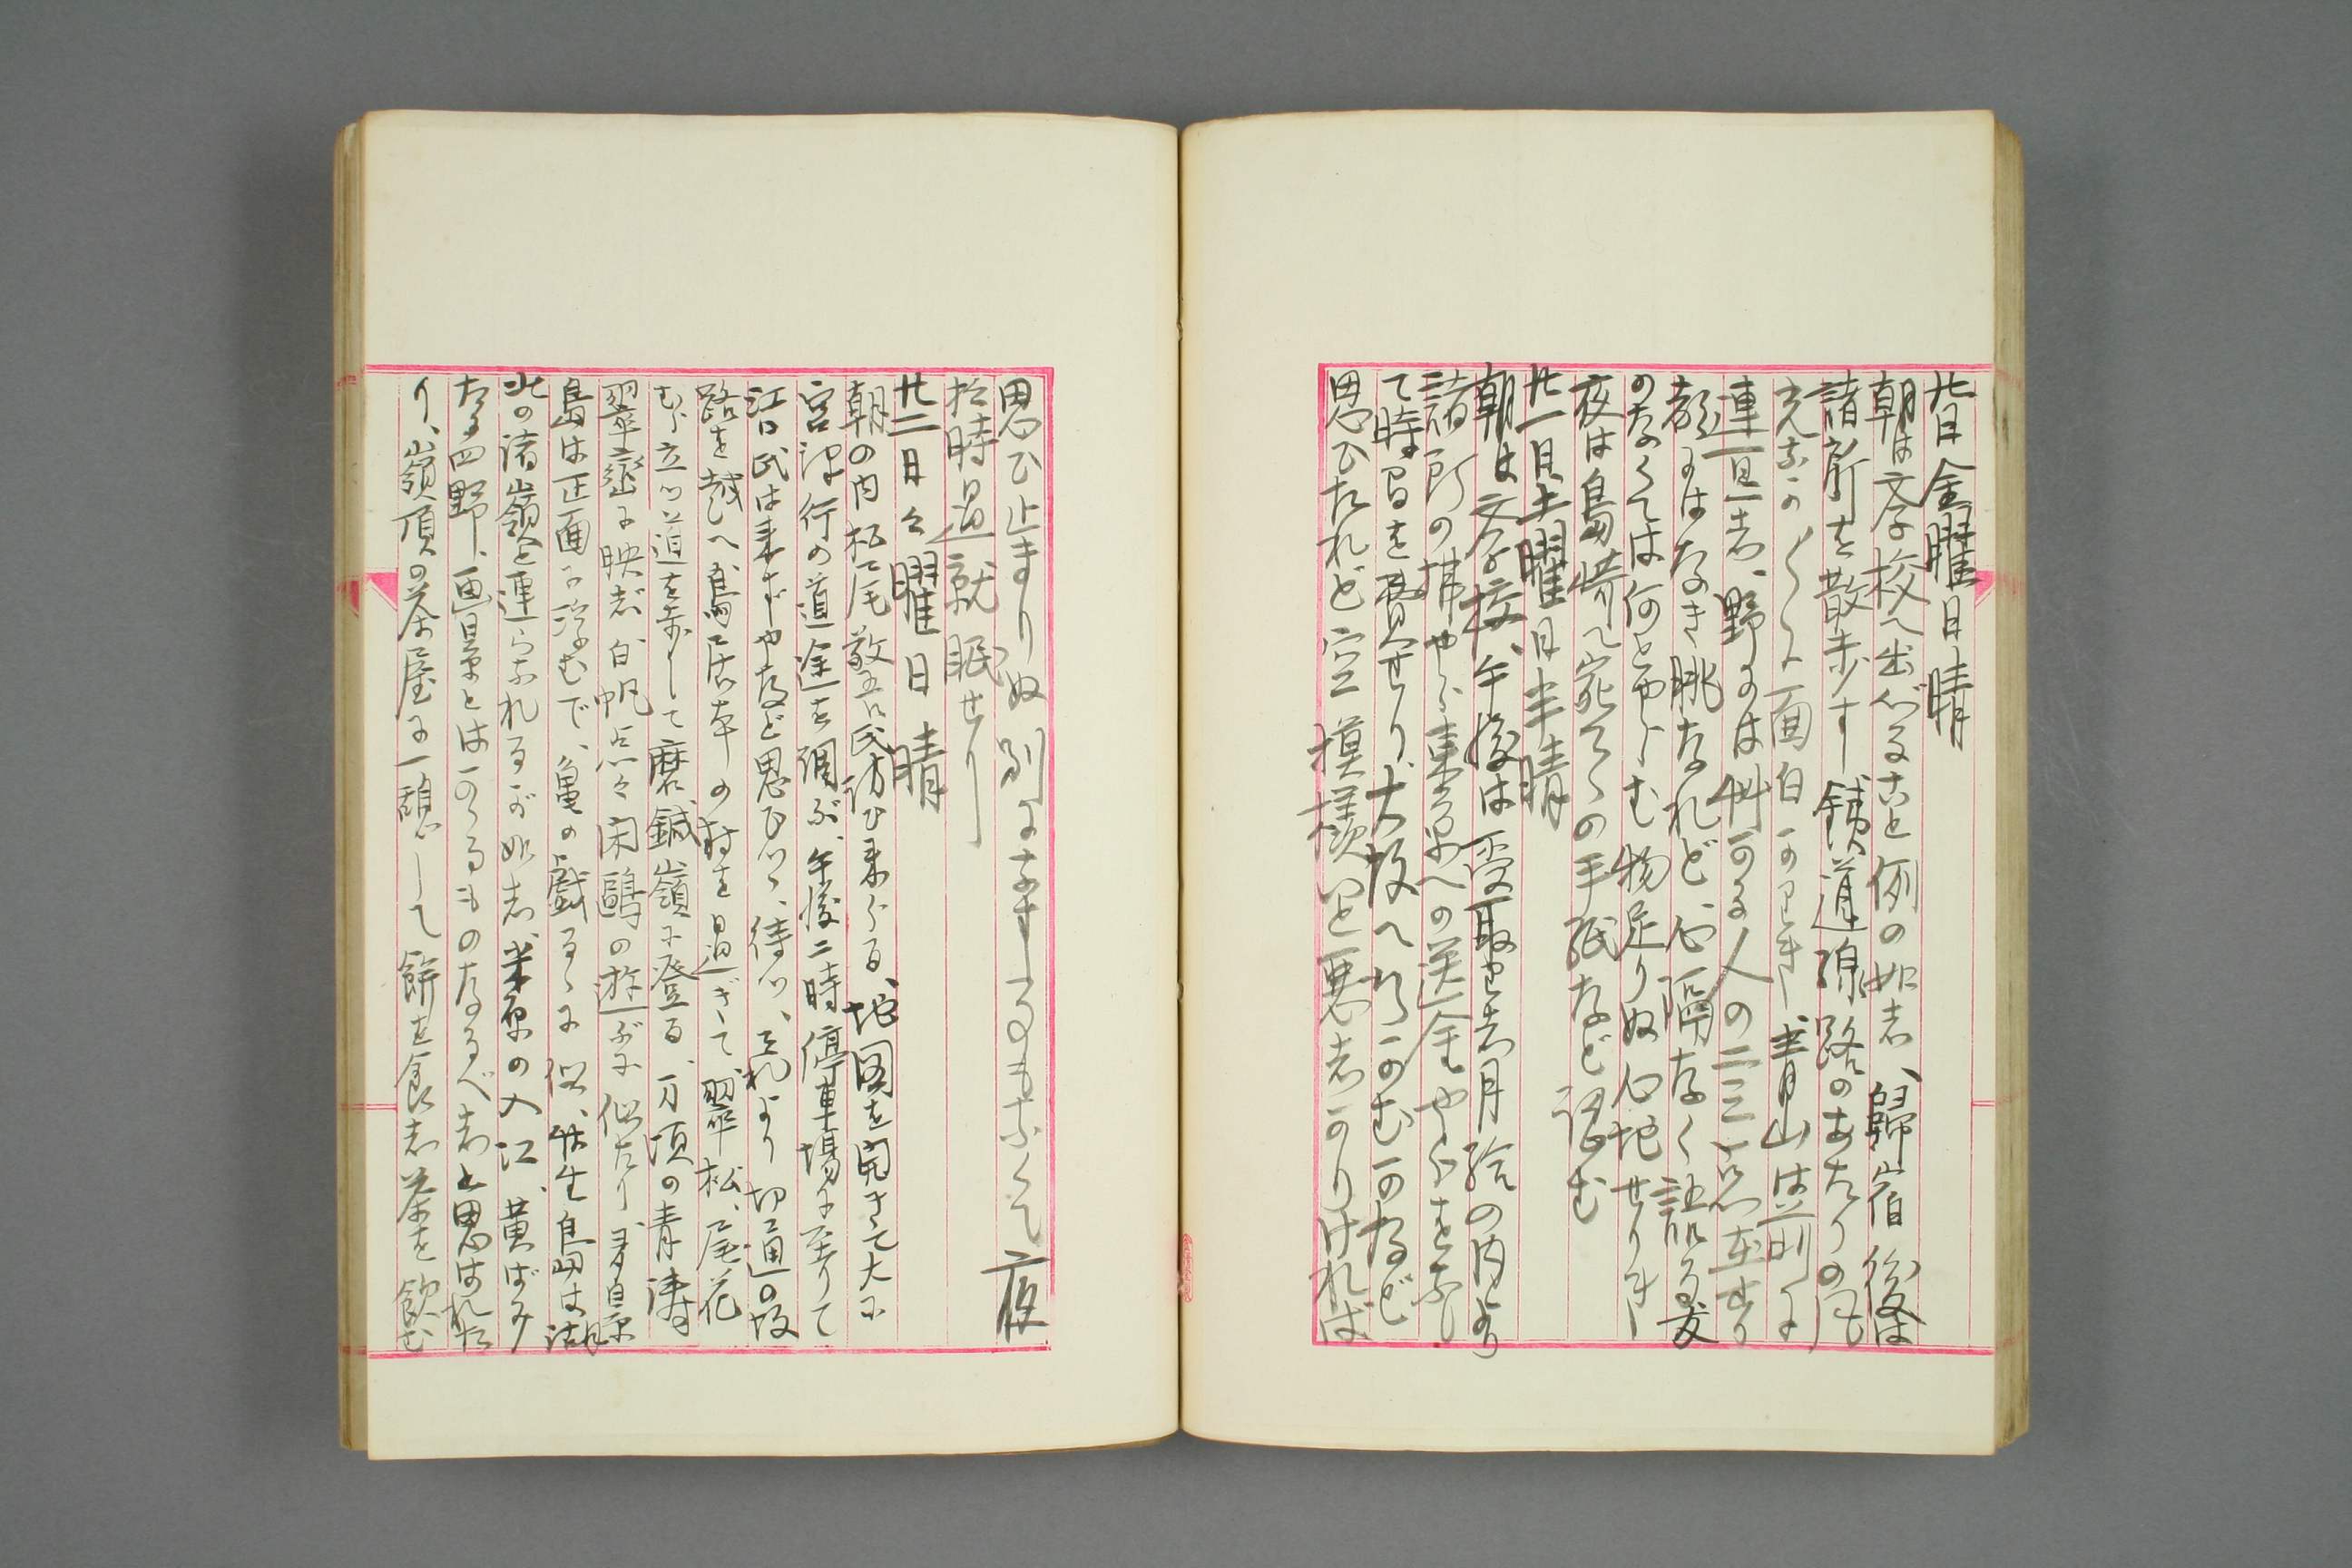 廿日金曜日晴
朝は文学校へ出づること例の如志、歸宿後は
諸所を散歩す鉄道線路のあたりの風
光なか〳〵に面白かりき、青山は前に
連亘志、野には艸かる人の二三点在する
顔にはなき眺なれど、心隔なく語る友
のなくては何とやらむ物足りぬ心地せりき
夜は島崎へ宛てゝの手紙など認む
廿一日土曜日半晴
朝は文学校、午後は受取り志月給の内より
諸所の拂やら東京への送金やらをなし
て時間を費せり、大坂へ行かむかなど
思ひたれど空模様いと悪志かりければ
思ひ止まりぬ別になすこともなくて夜
拾時過就眠せり
廿二日々曜日晴
朝の内松尾敬吾氏訪ひ来らる、地図を開きて大に
宮津行の道途を調ぶ、午後二時停車場に至りて
江口氏は来ずやなど思ひつゝ待つ、それより切通の坂
路を越へ鳥居本の村を過ぎて翠松、尾花
むら立つ道を歩して磨鍼嶺に登る、万頃の青濤
翠巒に映志白帆点々閑鷗の遊ぶに似たり、多景
島は正面に浮むで、亀の戯るゝに似、竹生島は湖
北の諸嶺と連らなれるが如志、米原の入江、黄ばみ
たる四野、画景とは かゝるものなるべ志と思はれた
り、嶺頂の茶屋に一憩して餅を食志茶を飲む